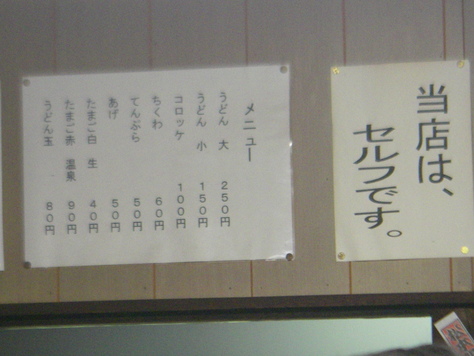 当店は、
セルフです。
メニュー
うどん 大 250円
うどん 小 150円
コロッケ 100円
ちくわ 60円
てんぷら 50円
あげ 50円
たまご白 生 40円
たまご赤 温泉 90円
うどん玉 80円